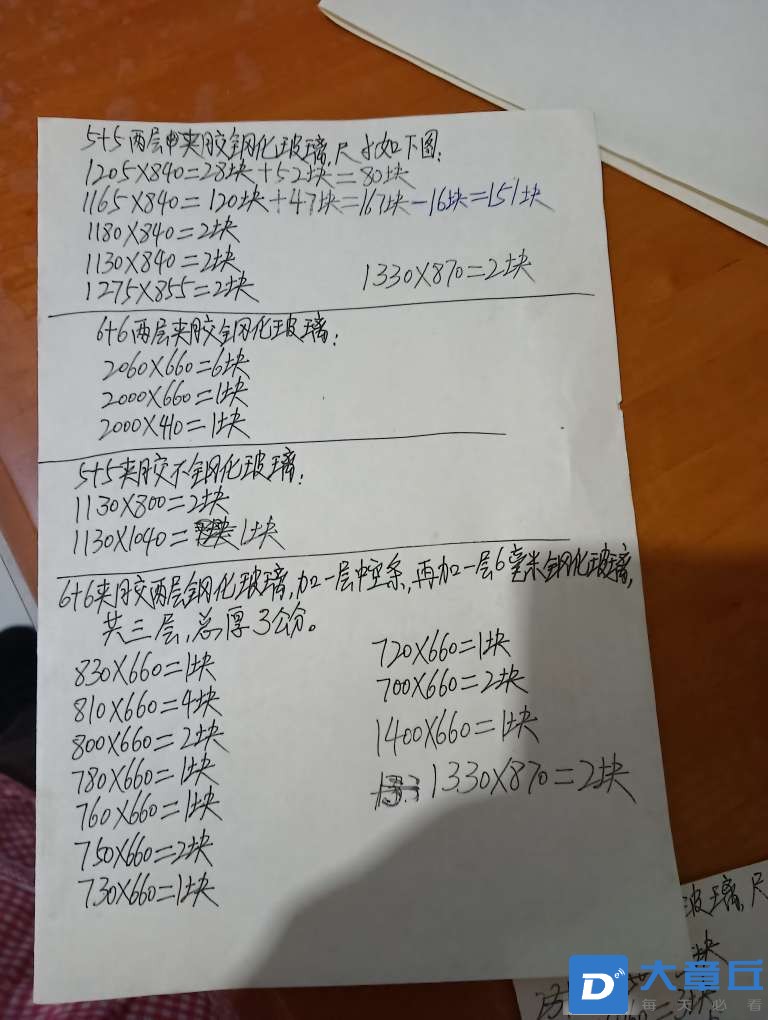 5+5两层夹胶钢化玻璃,尺寸如下图:
1205×840=28块+52块=80块
1165×840=120块+47块=167块-16块=151块
1180×840=2块
1130×840=2块
1275×855=2块
1330×870=2块
6+6两层夹胶钢化玻璃:
2060×660=6块
2000×660=1块
2000×410=1块
5+5夹胶不钢化玻璃:
1130×800=2块
1130×1040=1块
6+6夹胶两层钢化玻璃,加一层中空条,再加一层6毫米钢化玻璃,
共三层,总厚3公分。
830×660=1块
810×660=4块
800×660=2块
780×660=1块
760×660=1块
750×660=2块
730×660=1块
720×660=1块
700×660=2块
1400×660=1块
1330×870=2块
玻璃,尺
块
=3块
大章丘
每天必看